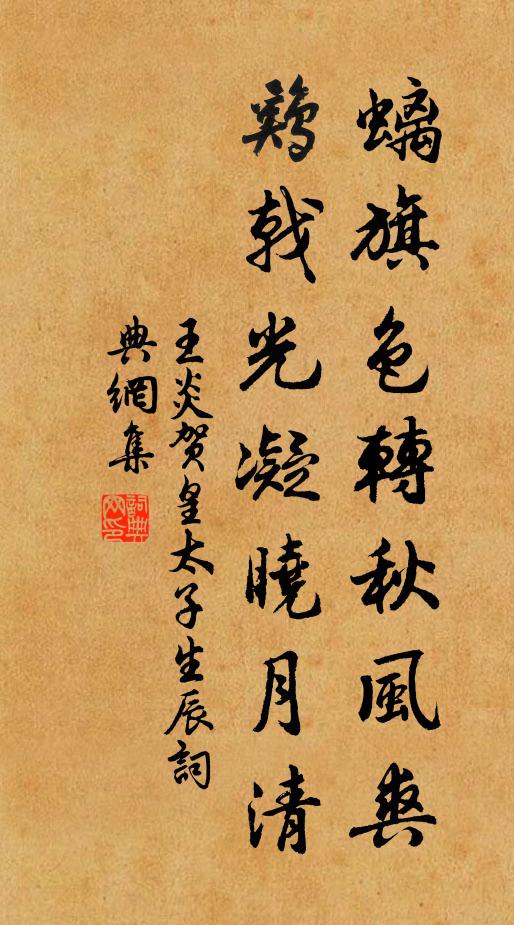 螭旗色轉秋風爽
鷄戟光凝曉月清
王炎賀皇太子生辰詞
典網集
詞典網印